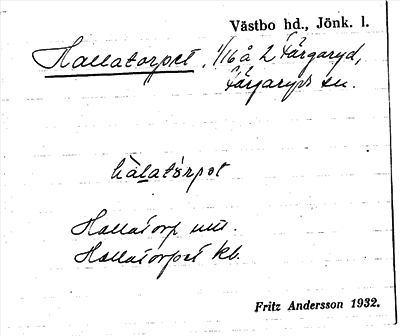 Västbo hd., Jönk. l.
Hallatorpet, 1/16 å 2 Färgaryd,
Färgaryds sn.
hàlatórpət
Hallatorp mtl.
Hallatorpet kb.
Fritz Andersson 1932.